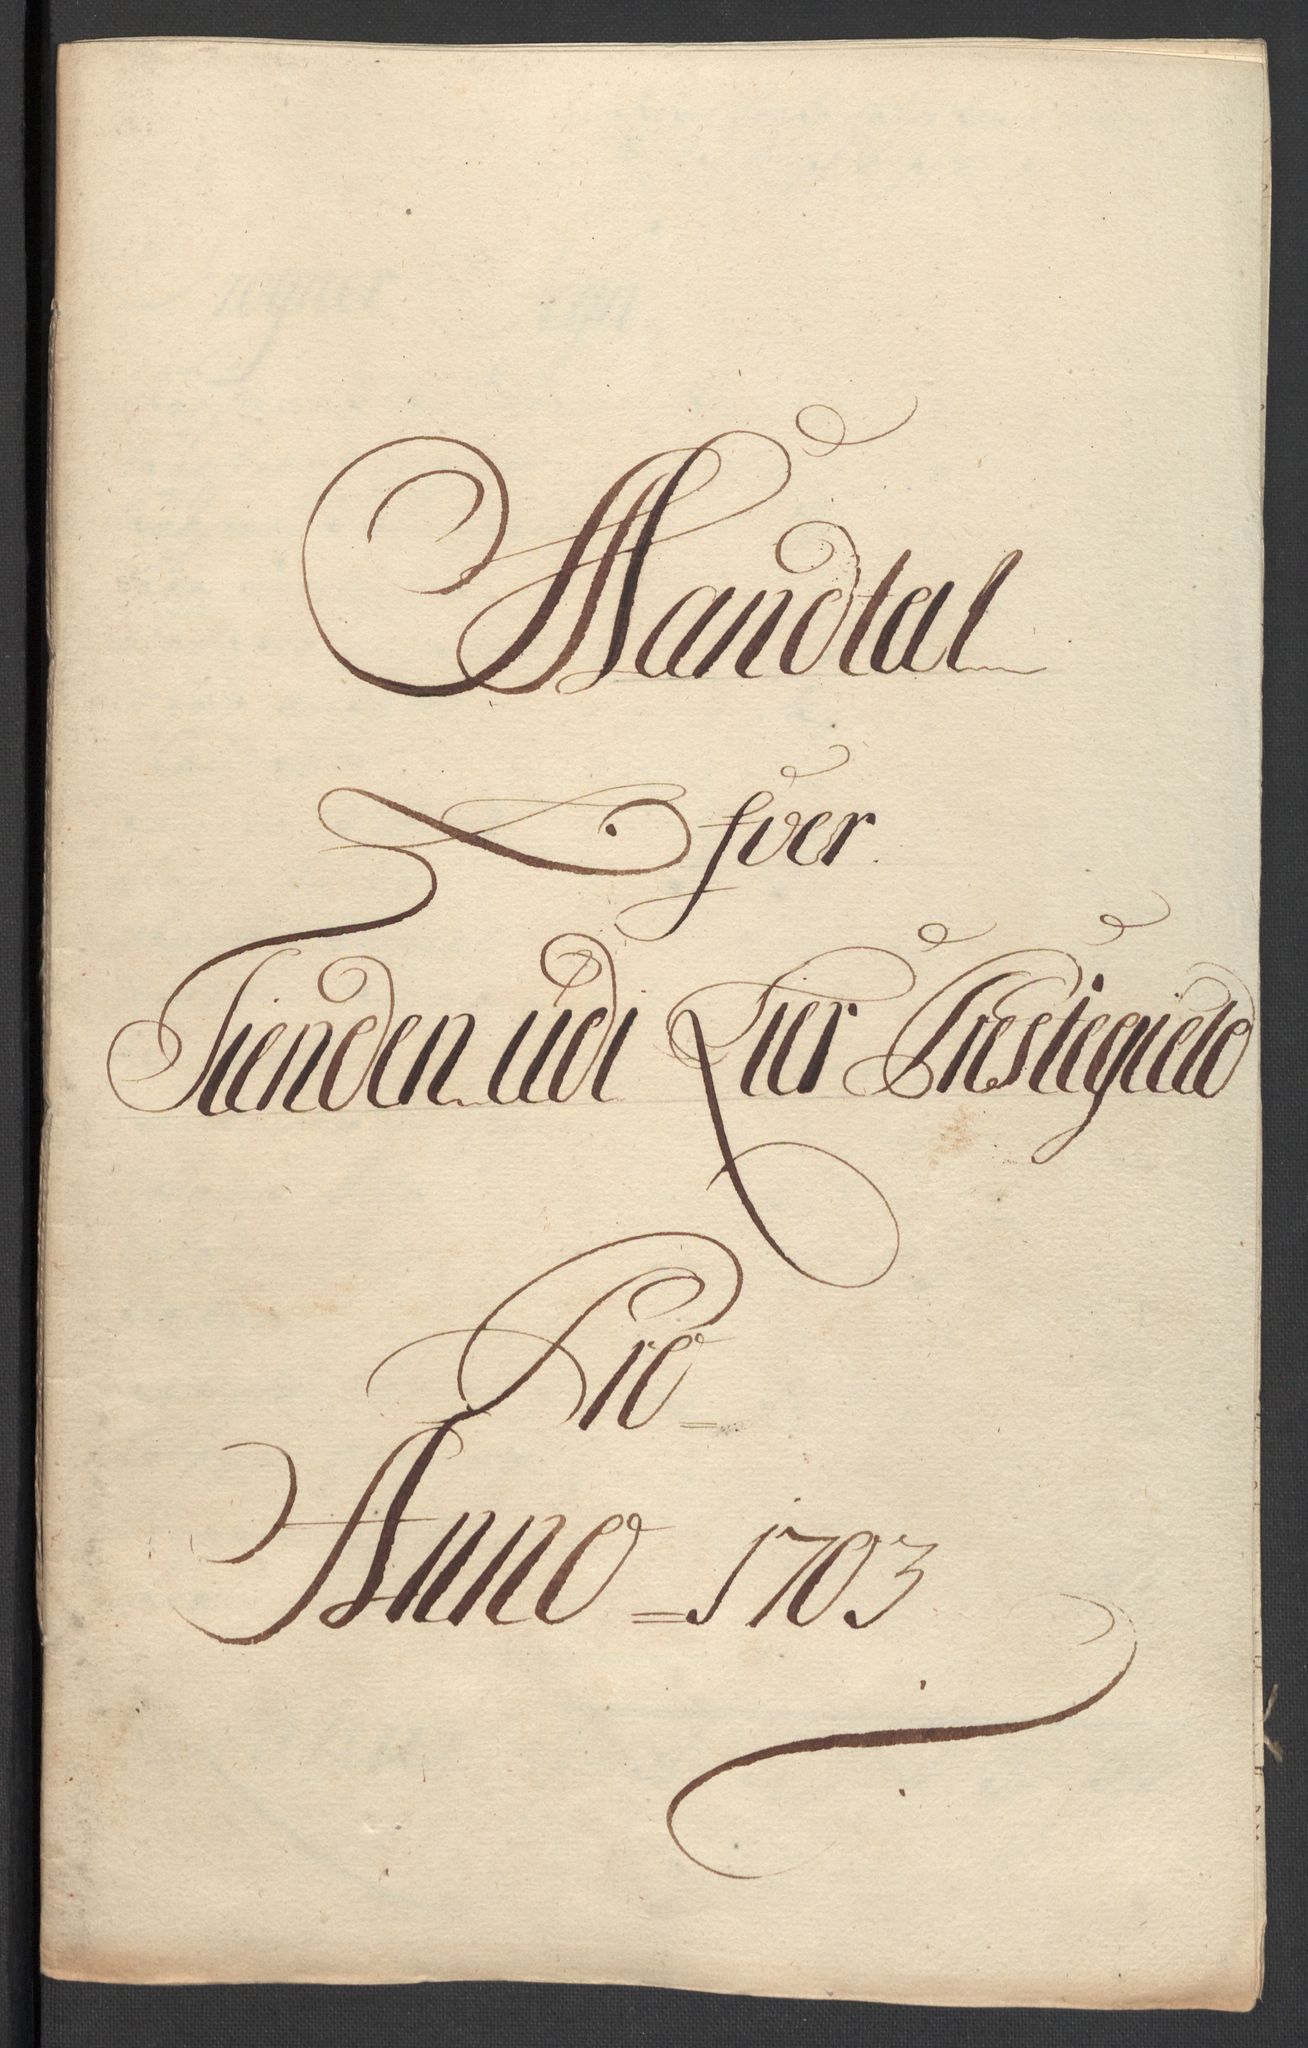 Mandtal
Ofver
Tienden udi Lier Prestegield
Pro
Anno 1703